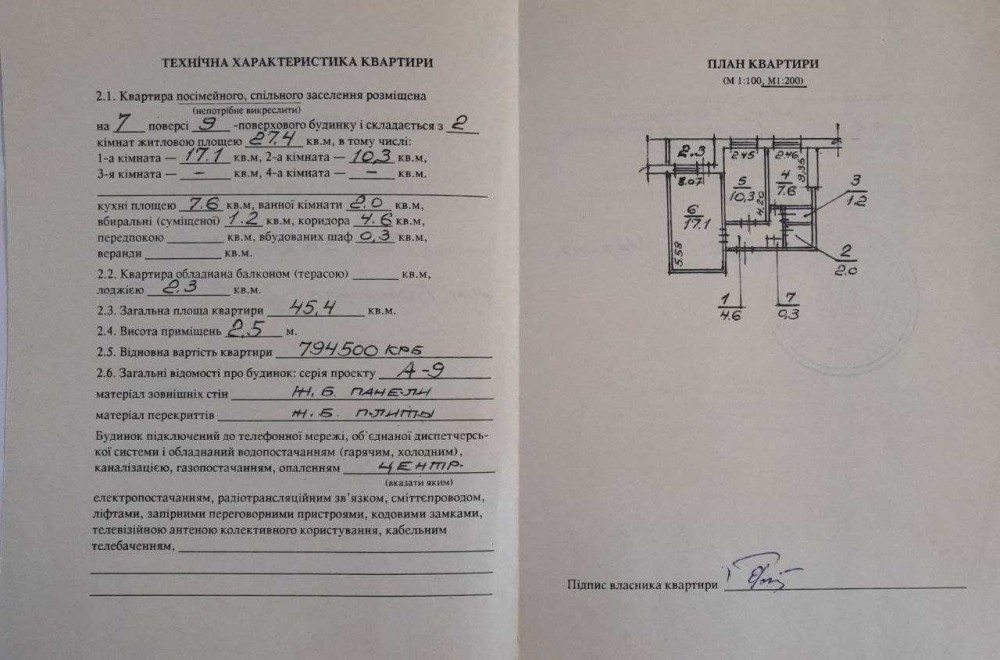 ТЕХНІЧНА ХАРАКТЕРИСТИКА КВАРТИРИ
2.1. Квартира посімейного, спільного заселення розміщена
(непотрібне викреслити)
на 7 поверсі 9 -поверхового будинку і складається з 2
кімнат житловою площею 27.4 кв.м, в тому числі:
1-а кімната — 17.1 кв.м, 2-а кімната — 10,3 кв.м,
3-я кімната — – кв.м, 4-а кімната — – кв.м.
кухні площею 7.6 кв.м, ванної кімнати 2.0 кв.м,
вбиральні (суміщеної) 1.2 кв.м, коридора 4.6 кв.м,
передпокою кв.м, вбудованих шаф 0,3 кв.м,
веранди кв.м.
2.2. Квартира обладнана балконом (терасою) кв.м,
лоджією 2.3 кв.м.
2.3. Загальна площа квартири 45,4 кв.м.
2.4. Висота приміщень 2,5 м.
2.5. Відновна вартість квартири 794500 КРБ
2.6. Загальні відомості про будинок: серія проекту А-9
матеріал зовнішніх стін Ж.Б. ПАНЕЛИ
матеріал перекриттів Ж.Б. ПЛИТЫ
Будинок підключений до телефонної мережі, об'єднаної диспетчерсь-
кої системи і обладнаний водопостачанням (гарячим, холодним),
каналізацією, газопостачанням, опаленням ЦЕНТР.
(вказати яким)
електропостачанням, радіотрансляційним зв'язком, сміттєпроводом,
ліфтами, запірними переговорними пристроями, кодовими замками,
телевізійною антеною колективного користування, кабельним
телебаченням,
ПЛАН КВАРТИРИ
(М 1:100, М1:200)
2.3
2.45
2.46
3.07
5
10,3
4.20
4
7.6
3.35
3
1.2
6
17.1
5.58
2
2.0
1
4.6
7
0,3
Підпис власника квартири